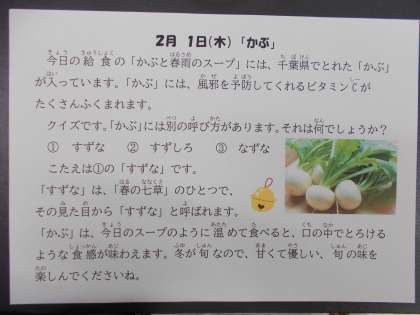 2月 1日(木) 「かぶ」
今日の給食の「かぶと春雨のスープ」には、千葉県でとれた「かぶ」
が入っています。「かぶ」には、風邪を予防してくれるビタミンCが
たくさんふくまれます。
クイズです。「かぶ」には別の呼び方があります。それは何でしょうか?
① すずな ② すずしろ ③ なずな
こたえは①の「すずな」です。
「すずな」は、「春の七草」のひとつで、
その見た目から「すずな」と呼ばれます。
「かぶ」は、今日のスープのように温めて食べると、口の中でとろける
ような食感が味わえます。冬が旬なので、甘くて優しい、旬の味を
楽しんでくださいね。